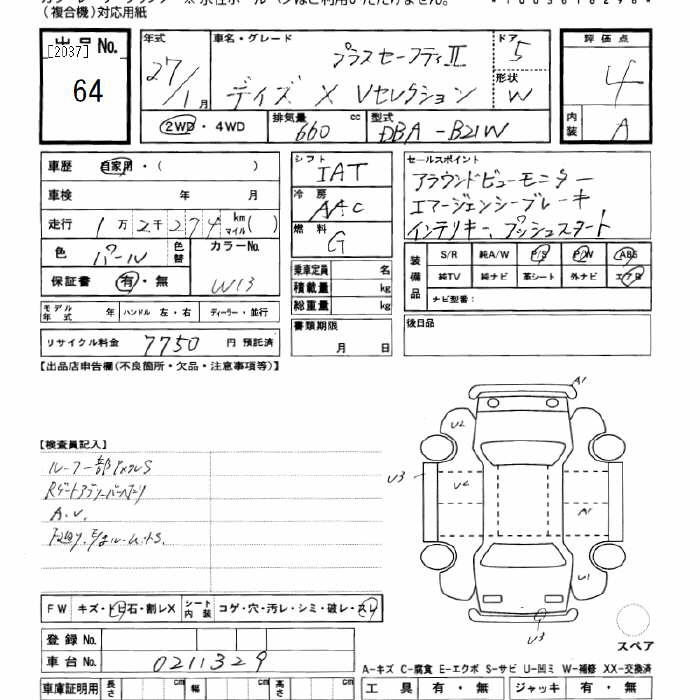 （複合機）対応用紙
出品No.
[2037]
64
年式
27/1月
車名・グレード
プラスセーフティII
デイズ X Vセレクション
ドア
5
形状
W
評価点
4
内装
A
2WD・4WD
排気量 660 cc
型式 DBA-B21W
車歴 自家用・( )
車検 年 月
走行 1万2千274 km マイル( )
色 パール
色替
カラーNo. W13
保証書 有・無
シフト IAT
冷房 AAC
燃料 G
乗車定員 名
積載量 kg
総重量 kg
書類期限
月 日
セールスポイント
アラウンドビューモニター
エマージェンシーブレーキ
インテリキー、プッシュスタート
装備品
S/R 純A/W P/S P/W ABS
純TV 純ナビ 革シート 外ナビ エアB
ナビ型番：
後日品
モデル年式 年 ハンドル 左・右 ディーラー・並行
リサイクル料金 7750 円 預託済
【出品店申告欄(不良箇所・欠品・注意事項等)】
【検査員記入】
A.U.
A1
U2
U3
U2
A1
U1
U3
FW キズ・トビ石・割レX
シート内装 コゲ・穴・汚レ・シミ・破レ・スレ
登録No.
車台No. 0211329
スペア
A-キズ C-腐食 E-エクボ S-サビ U-凹ミ W-補修 XX-交換済
車庫証明用 長さ cm 幅 cm 高さ cm
工具 有・無 ジャッキ 有・無